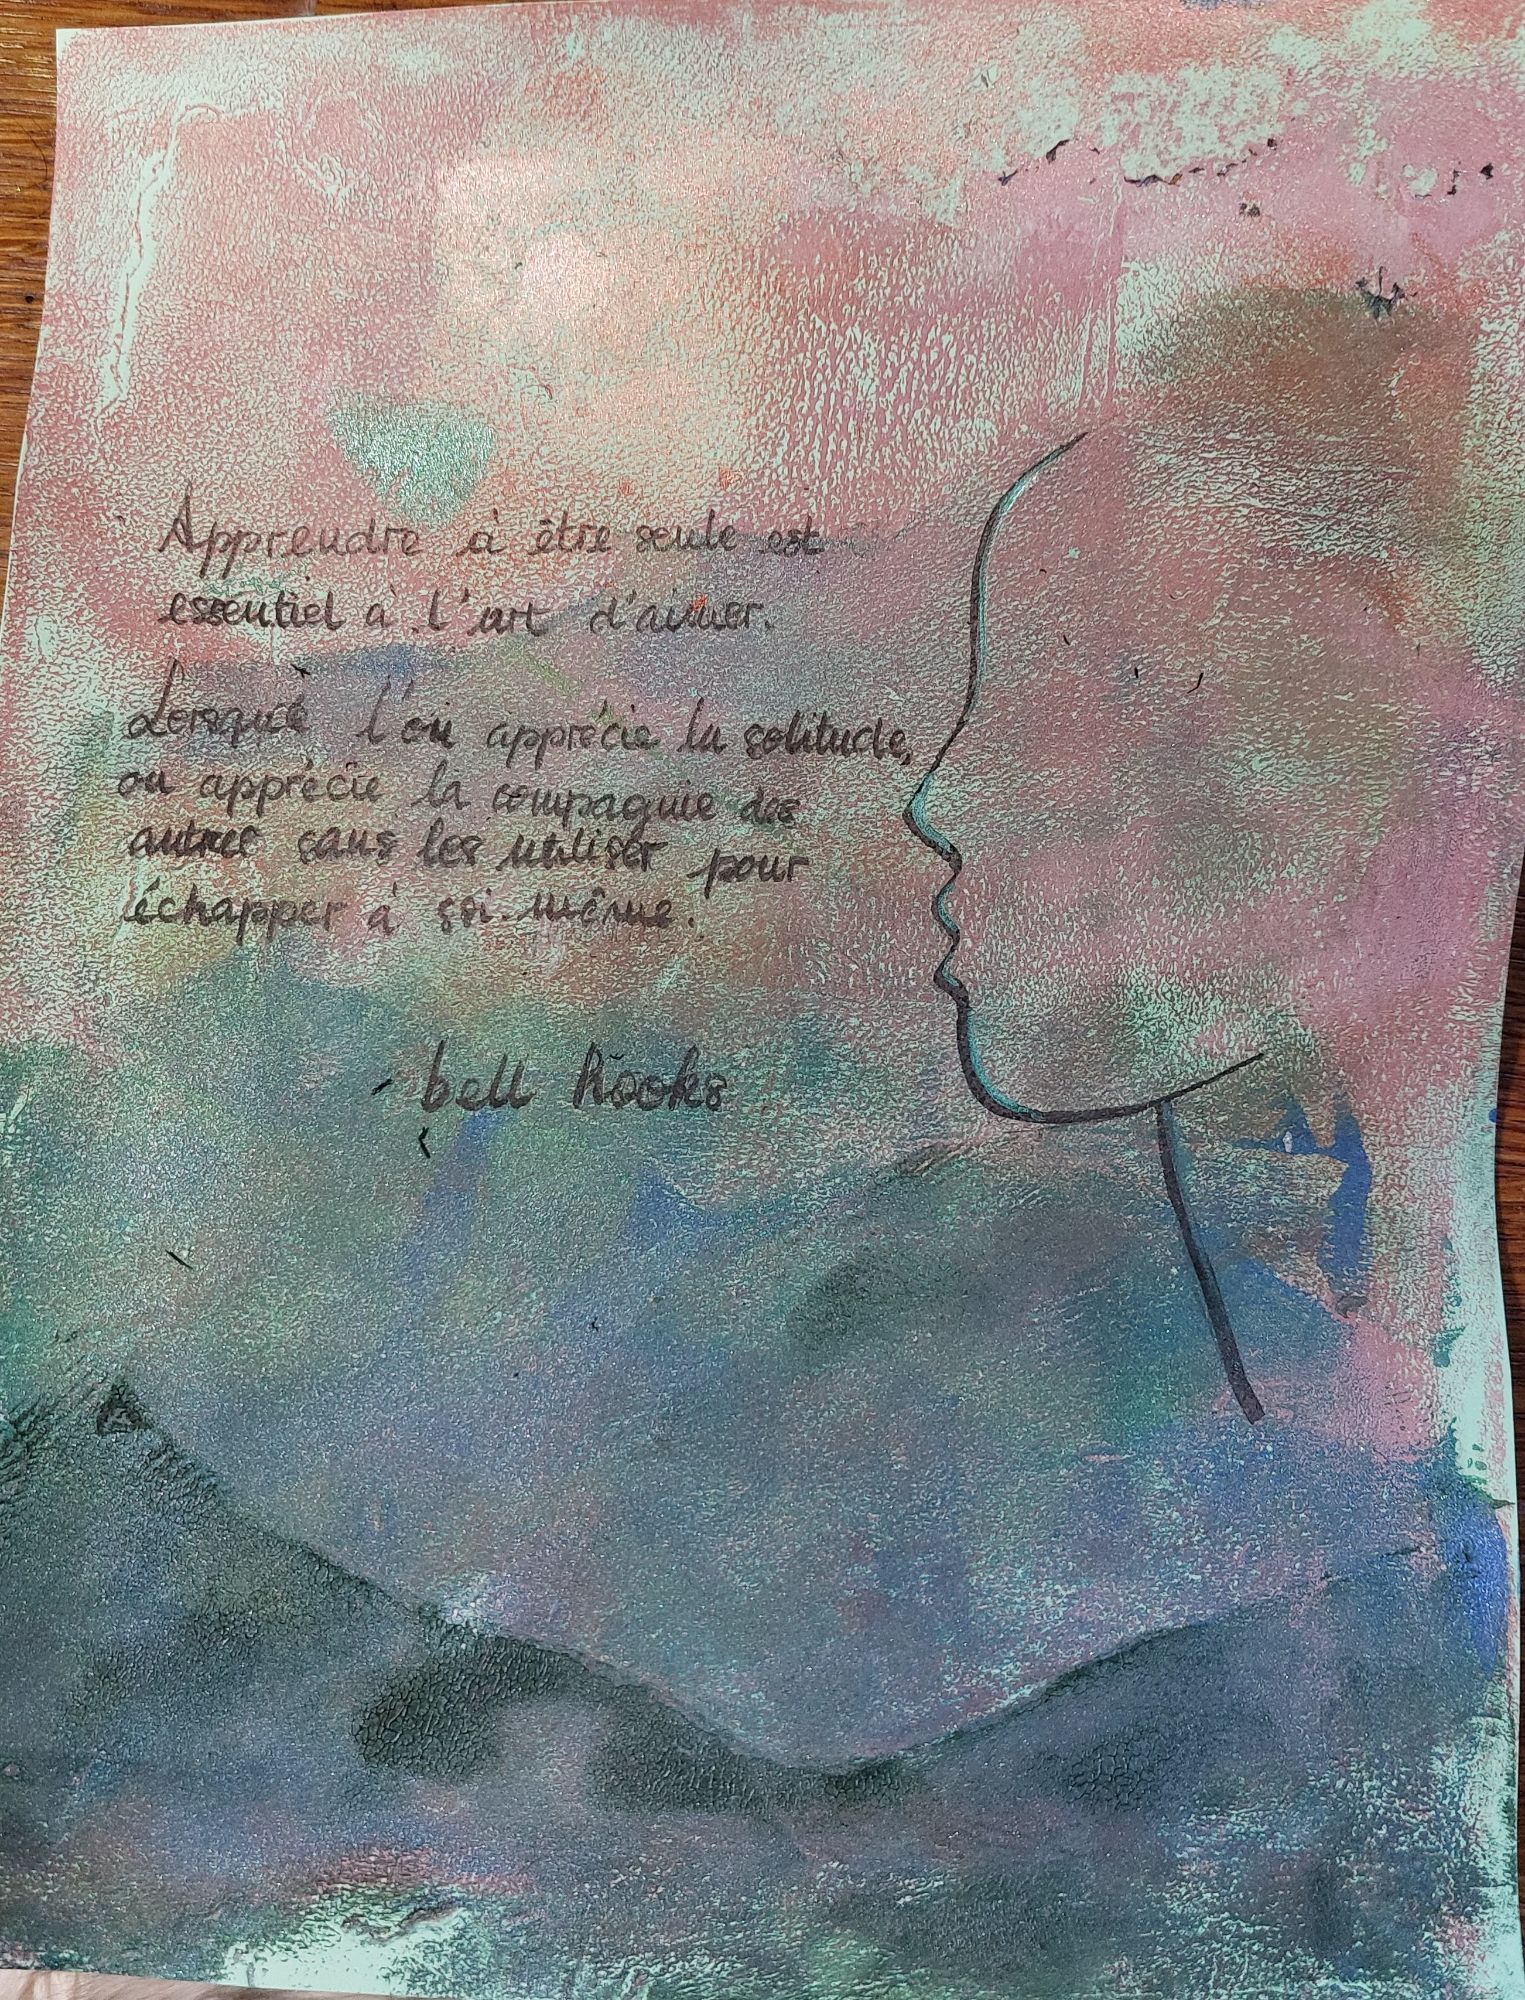 Apprendre à être seule est
essentiel à l'art d'aimer.
Lorsque l'on apprécie la solitude,
on apprécie la compagnie des
autres sans les utiliser pour
échapper à soi-même.
- bell hooks